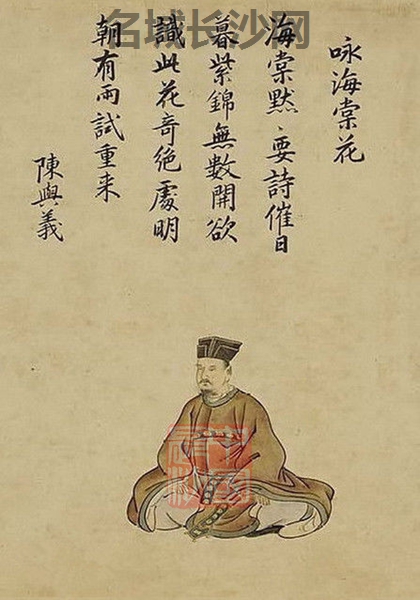 名城长沙网
咏海棠花
海棠默々要詩催日
暮紫錦無數開欲
識此花奇絕處明
朝有雨試重来
陳與義